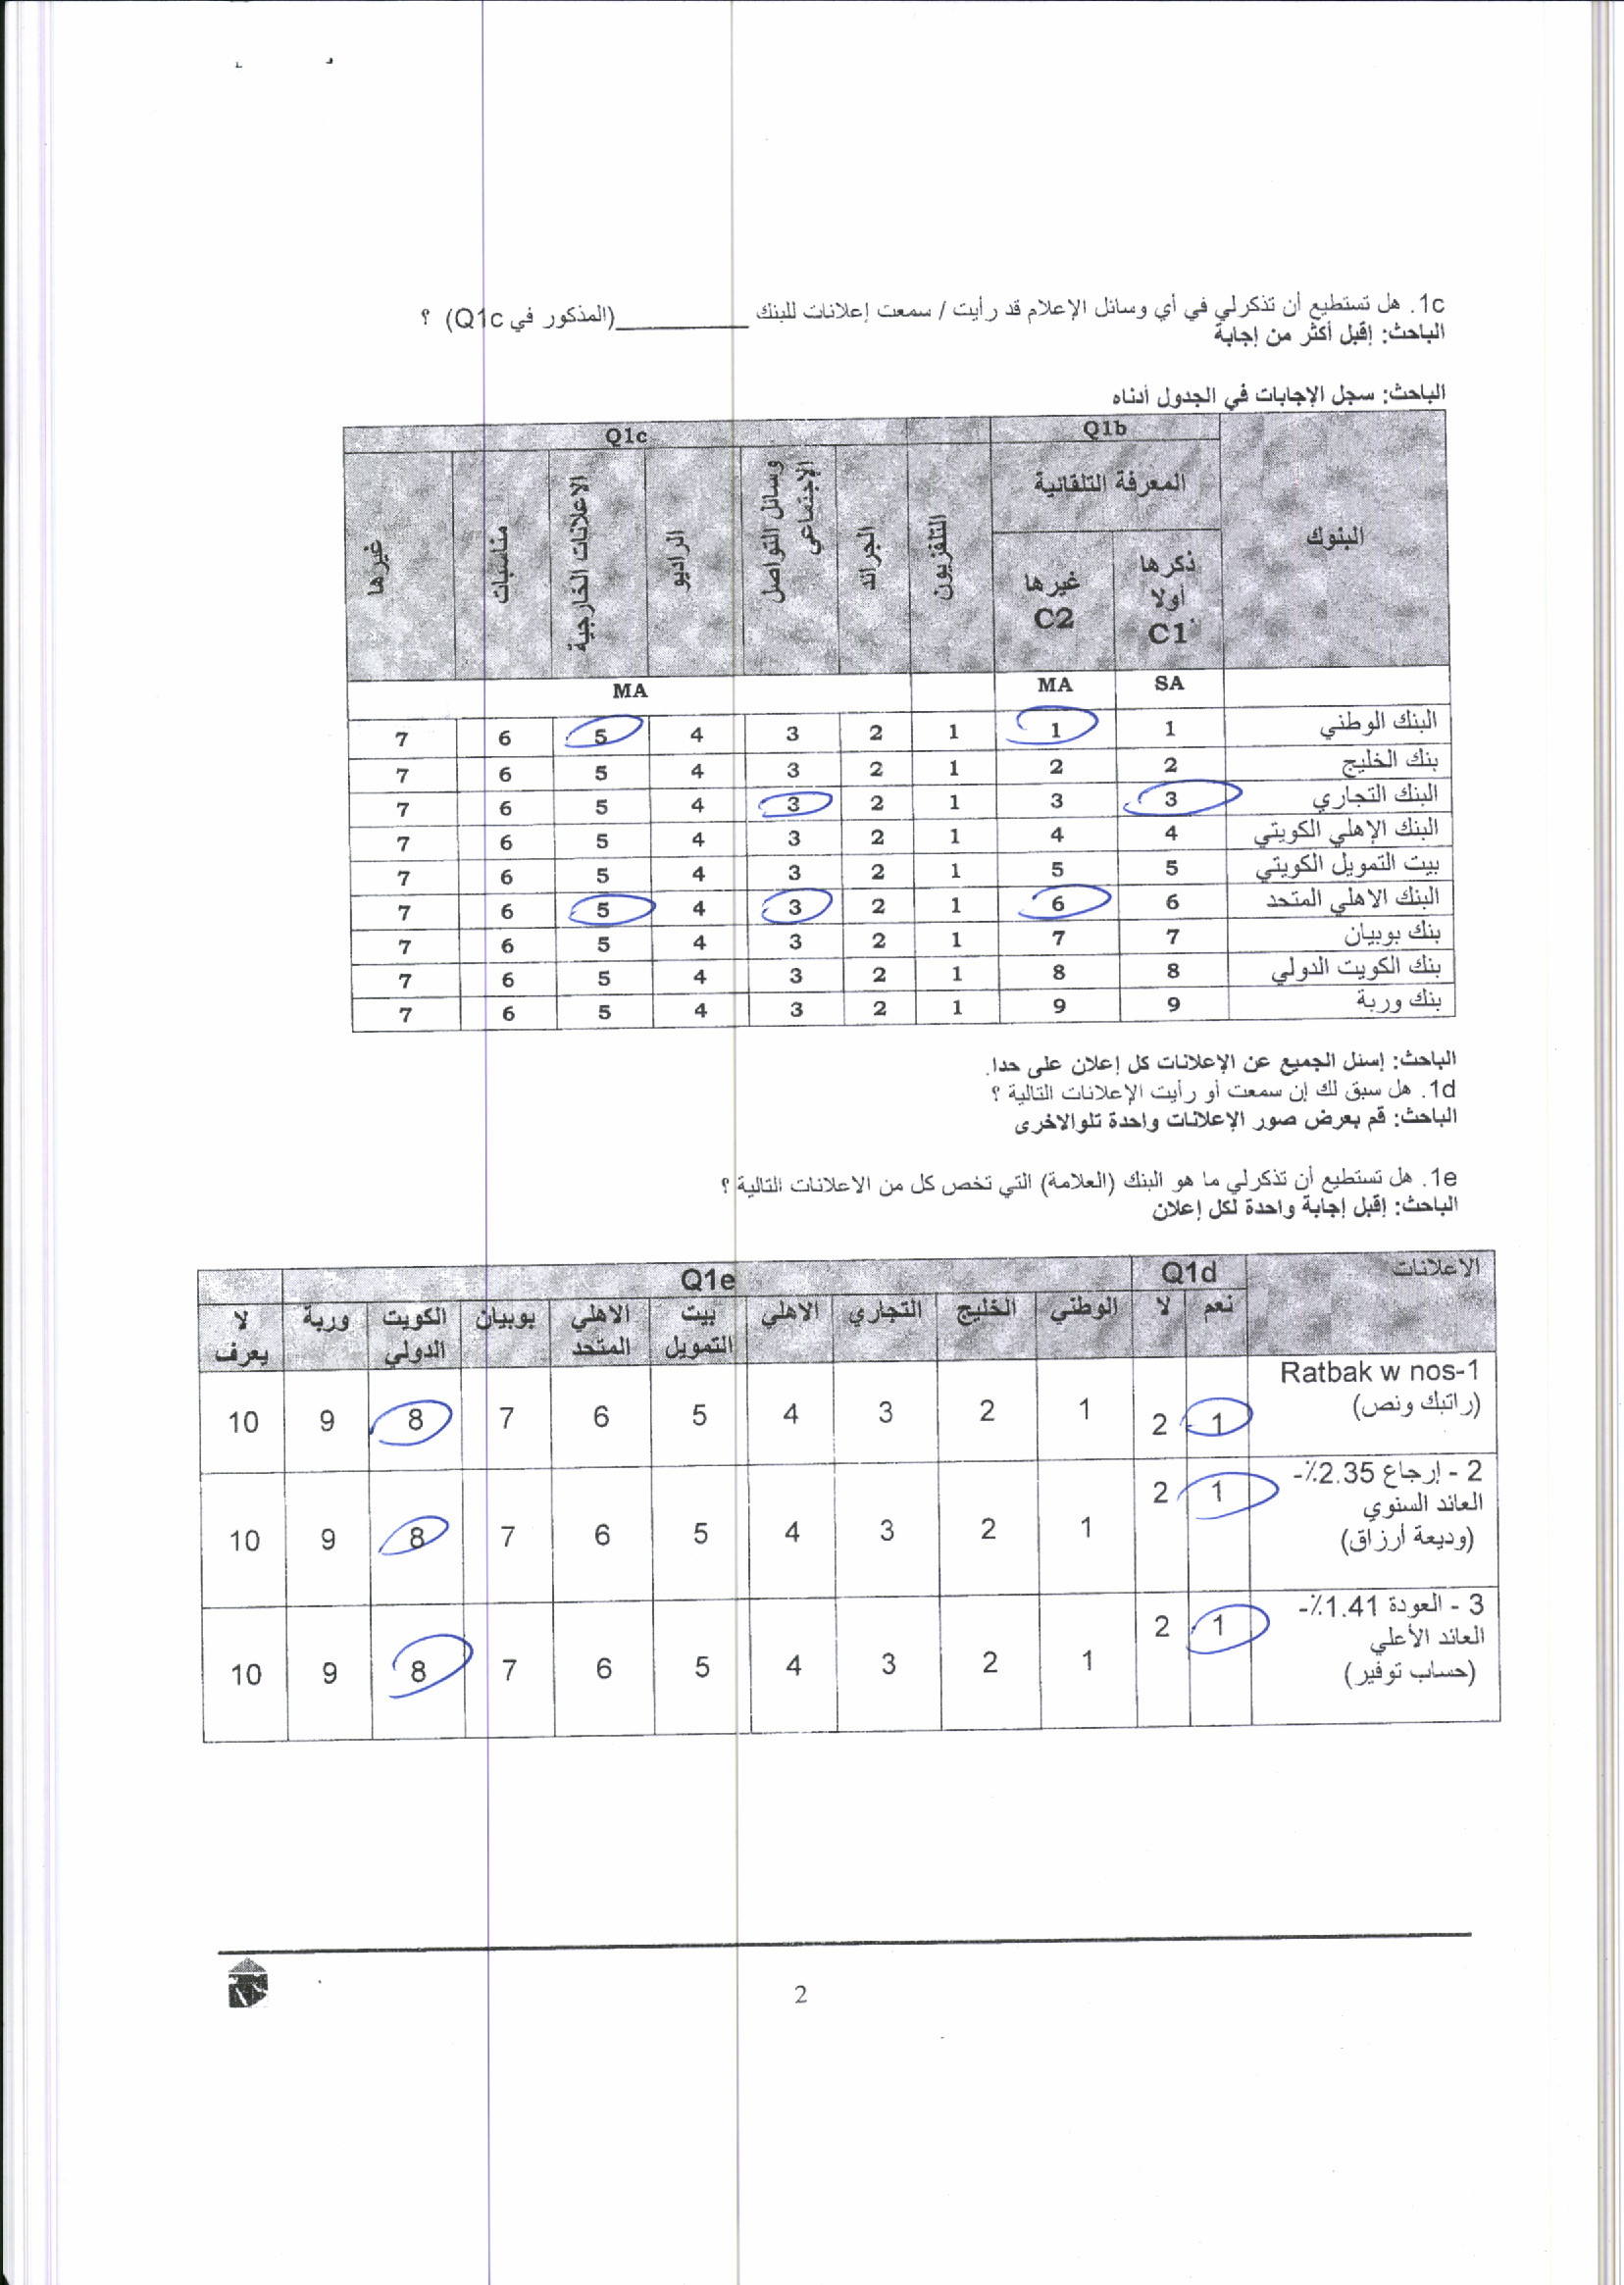 1c. هل تستطيع أن تذكرلي في أي وسائل الإعلام قد رأيت / سمعت إعلانات للبنك ____________(المذكور في Q1c) ؟
الباحث: إقبل أكثر من إجابة
الباحث: سجل الإجابات في الجدول أدناه
البنوك Q1b Q1c
المعرفة التلقائية
ذكرها أولا C1 غيرها C2 التلفزيون الجرائد وسائل التواصل الإجتماعي الراديو الاعلانات الخارجية مناسبات غيرها
SA MA MA
البنك الوطني 1 1 1 2 3 4 5 6 7
بنك الخليج 2 2 1 2 3 4 5 6 7
البنك التجاري 3 3 1 2 3 4 5 6 7
البنك الإهلي الكويتي 4 4 1 2 3 4 5 6 7
بيت التمويل الكويتي 5 5 1 2 3 4 5 6 7
البنك الاهلي المتحد 6 6 1 2 3 4 5 6 7
بنك بوبيان 7 7 1 2 3 4 5 6 7
بنك الكويت الدولي 8 8 1 2 3 4 5 6 7
بنك وربة 9 9 1 2 3 4 5 6 7
الباحث: إسئل الجميع عن الإعلانات كل إعلان على حدا.
1d. هل سبق لك إن سمعت أو رأيت الإعلانات التالية ؟
الباحث: قم بعرض صور الإعلانات واحدة تلوالاخرى
1e. هل تستطيع أن تذكرلي ما هو البنك (العلامة) التي تخص كل من الاعلانات التالية ؟
الباحث: إقبل إجابة واحدة لكل إعلان
الاعلانات Q1d Q1e
نعم لا الوطني الخليج التجاري الاهلي بيت التمويل الاهلي المتحد بوبيان الكويت الدولي وربة لا يعرف
Ratbak w nos-1
(راتبك ونص) 1 2 1 2 3 4 5 6 7 8 9 10
2 - إرجاع 2.35٪-
العائد السنوي
(وديعة أرزاق) 1 2 1 2 3 4 5 6 7 8 9 10
3 - العودة 1.41٪-
العائد الأعلي
(حساب توفير) 1 2 1 2 3 4 5 6 7 8 9 10
2